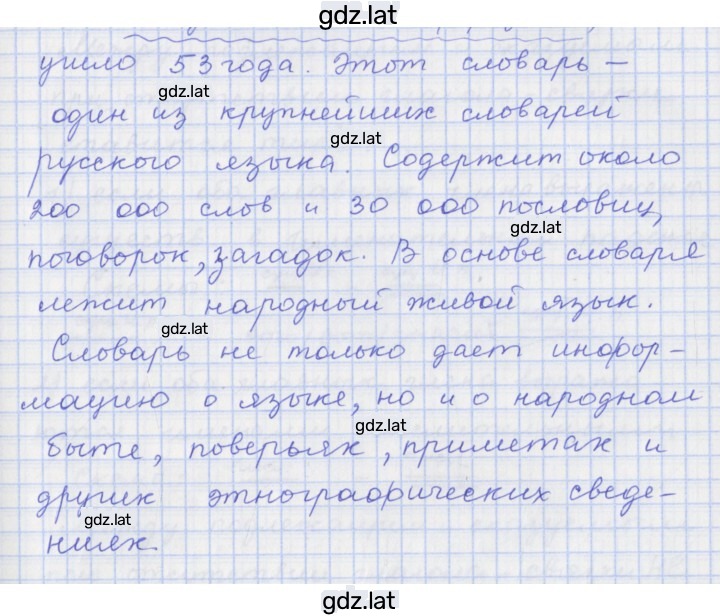 gdz.lat
ушло 53 года. Этот словарь –
gdz.lat
один из крупнейших словарей
gdz.lat
русского языка. Содержит около
200 000 слов и 30 000 пословиц,
gdz.lat
поговорок, загадок. В основе словаря
лежит народный живой язык.
gdz.lat
Словарь не только дает инфор-
мацию о языке, но и о народном
gdz.lat
быте, поверьях, приметах и
других этнографических сведе-
gdz.lat
ниях.
gdz.lat